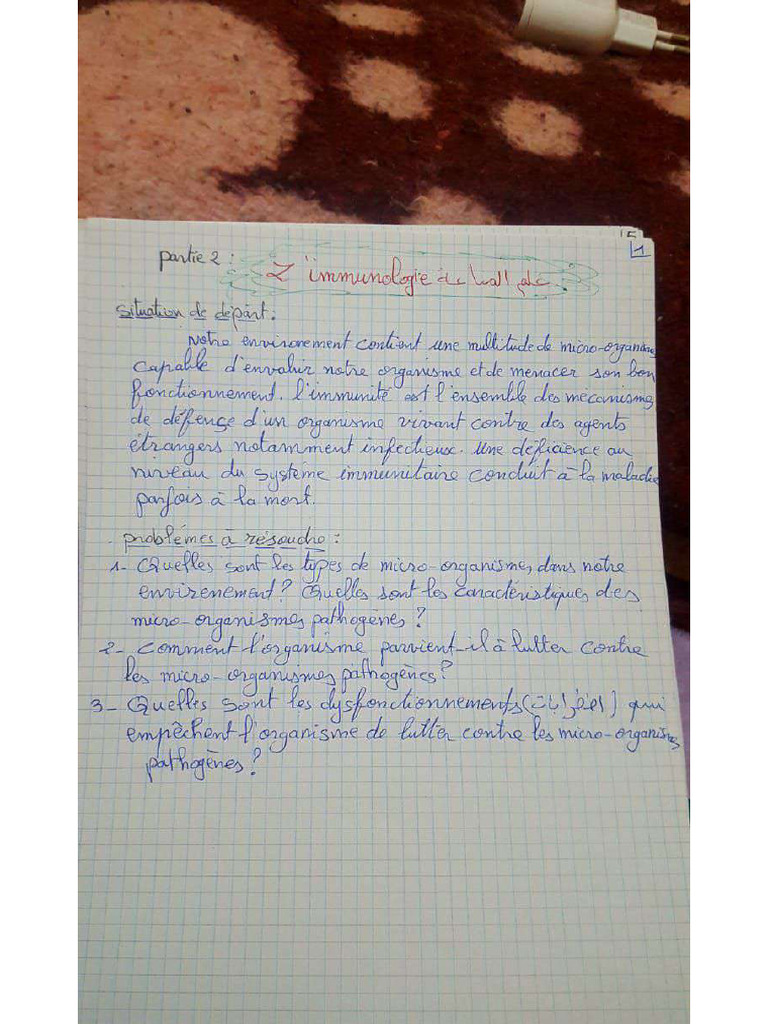 1
partie 2 :
L'immunologie علم المناعة
situation de départ :
Notre environement contient une multitude de micro-organismes
capable d'envahir notre organisme et de menacer son bon
fonctionnement. l'immunité est l'ensemble des mecanismes
de défence d'un organisme vivant contre des agents
étrangers notamment infectieux. une déficience au
niveau du système immunitaire conduit à la maladie
parfois à la mort.
problèmes à résoudre :
1- Quelles sont les types de micro-organismes dans notre
envirenement ? Quelles sont les caractéristiques des
micro-organismes pathogènes ?
2- comment l'organisme parvient-il à lutter contre
les micro-organismes pathogènes ?
3- Quelles sont les dysfonctionnements (اضطرابات) qui
empêchent l'organisme de lutter contre les micro-organismes
pathogènes ?